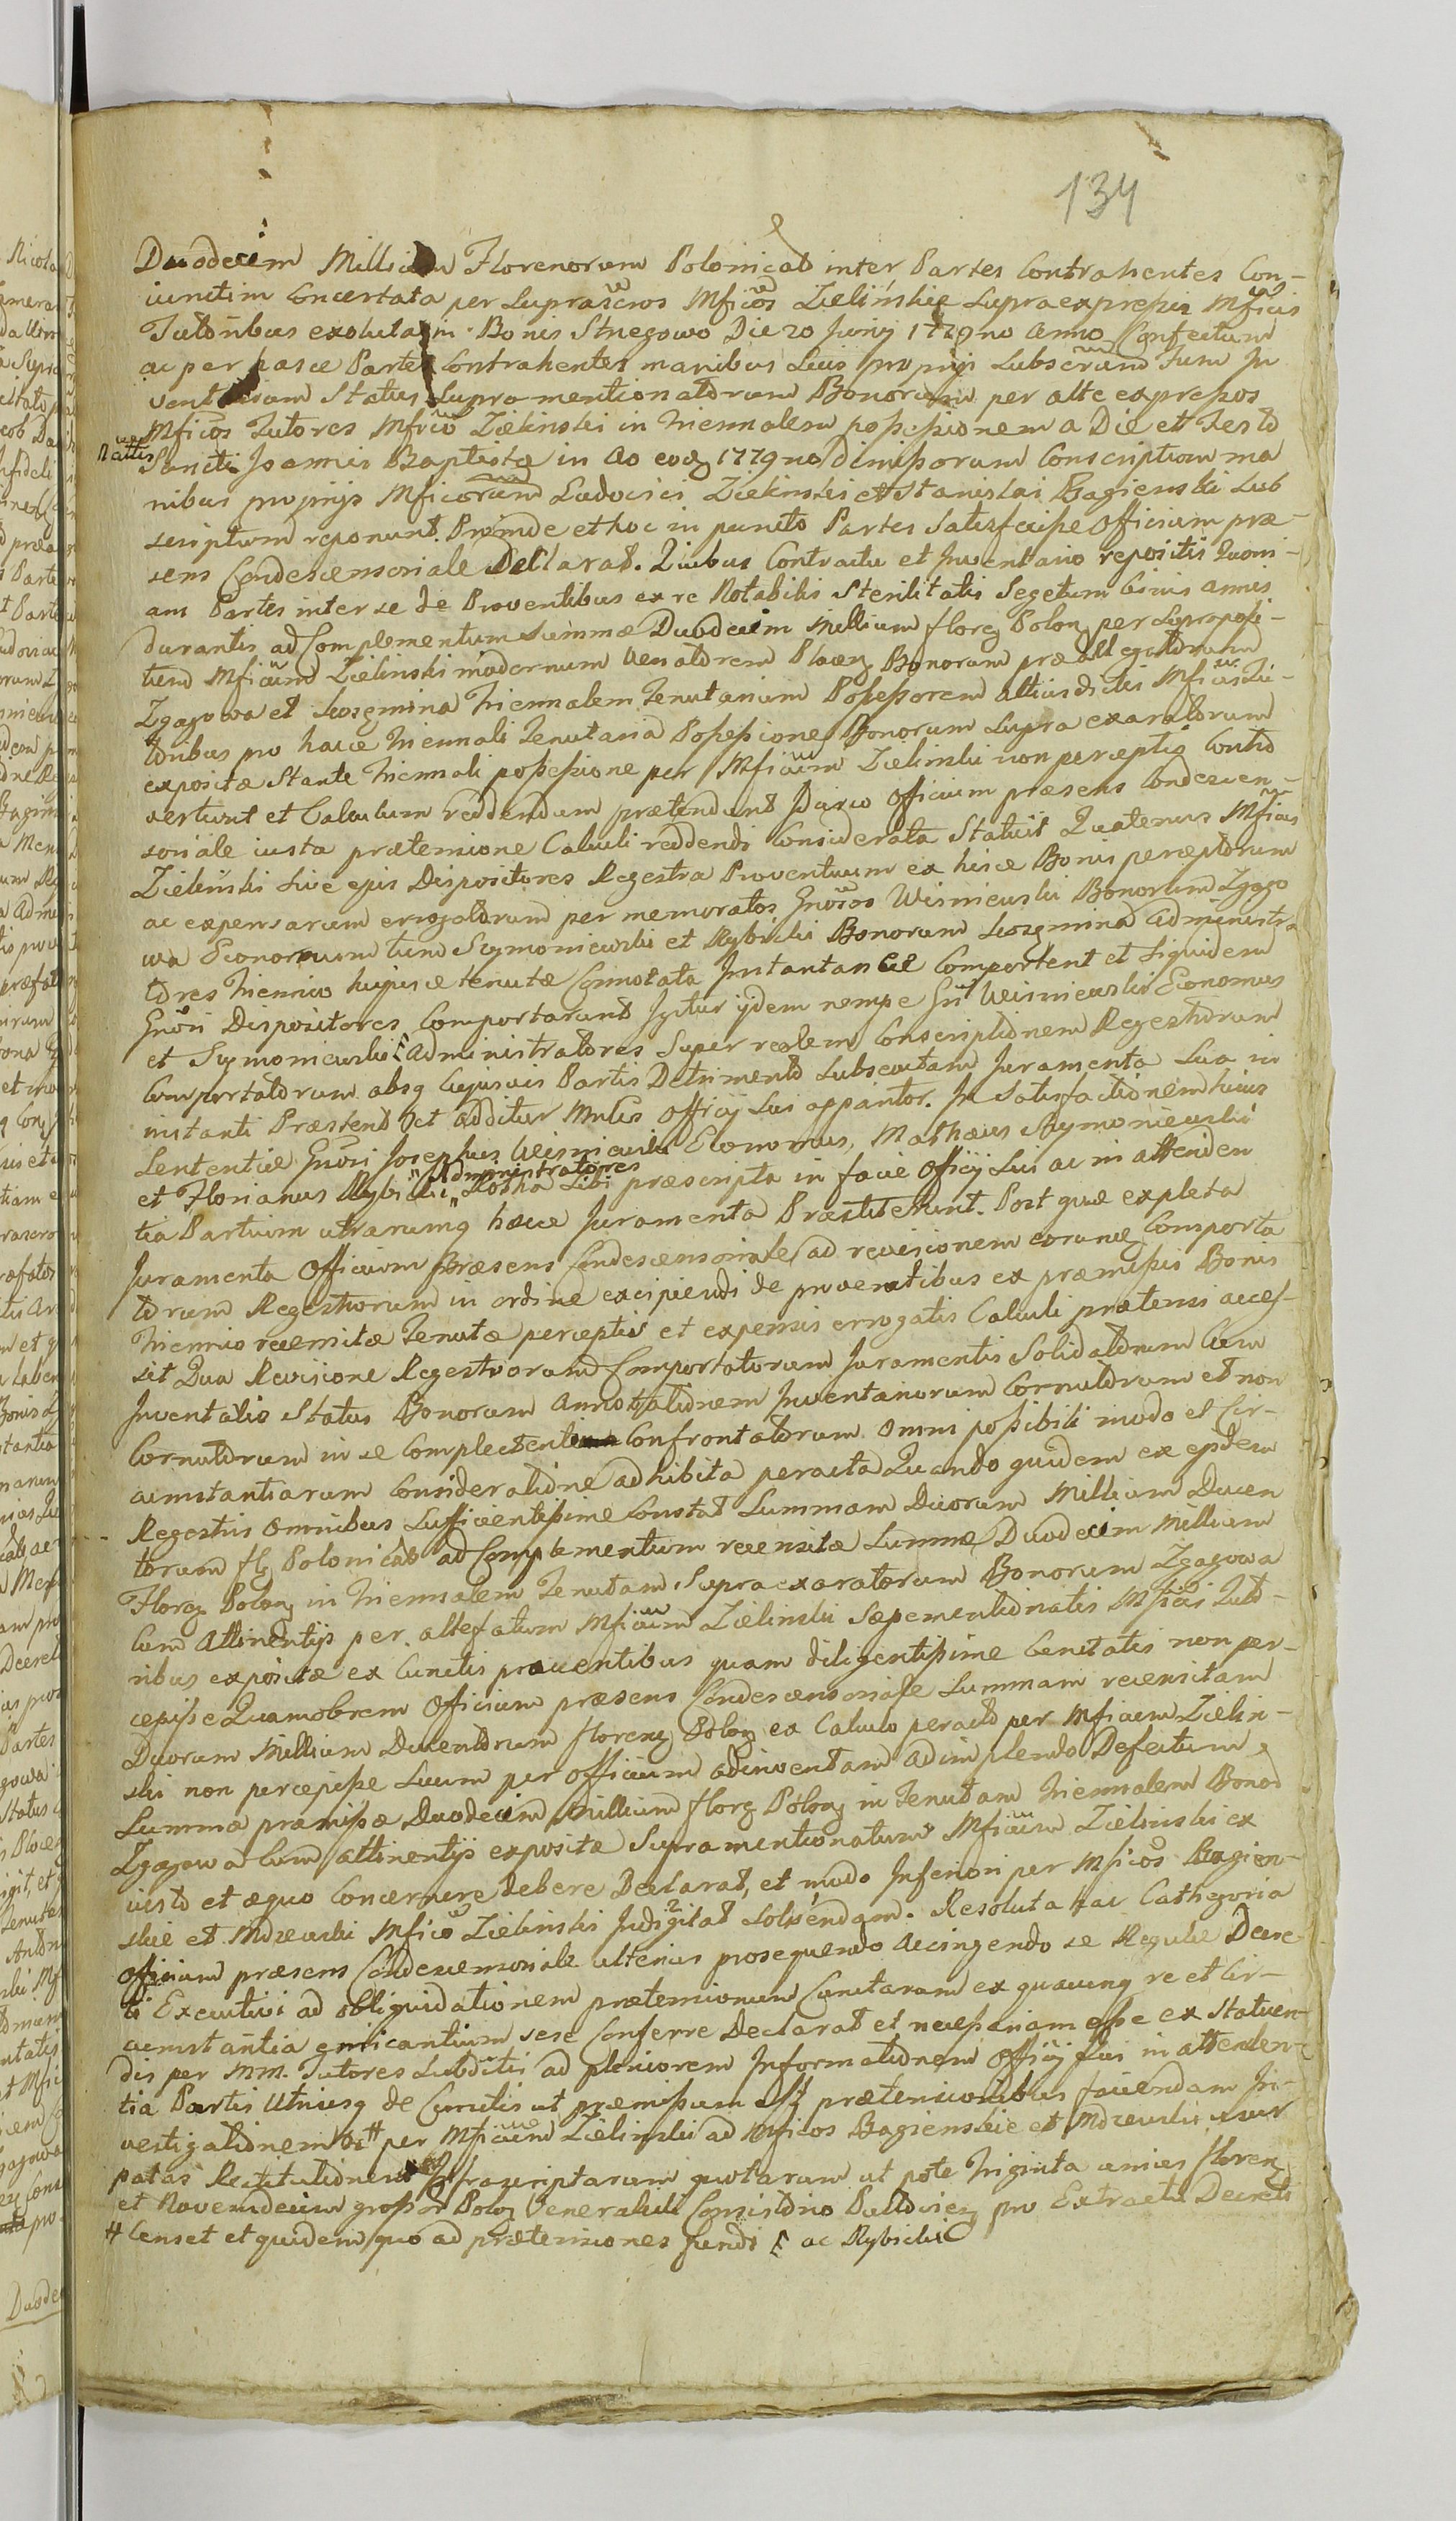 134
Duodecim Millium Florenorum Polonical inter Partes Contrahentes Con-
iunctim Concertata per Suprascros Mficos Zielińskie Supraexpressis Mficis
Tutoribus exoluta in Bonis Strzegowo Die 20 Junij 1779no Anno Confectum
ac per hasce Partes Contrahentes manibus Suis proprijs Subscrum Tum In
ventarium Status Supra mentionatorum Bonorum per alte expressos
Mficos Tutores Mfico Zielinski in Triennalem possessionem a Die et Festo
Nattis Sancti Joannis Baptistæ in Ao eodq 1779no dimissorum Conscriptum ma
nibus proprijs Mficorum Ludovici Zielinski et Stanislai Bagienski Sub
scriptum reponunt. Proinde et hoc in puncto Partes Satisfecisse Officium præ-
sens Condescensoriale Declarat. Quibus Contractu et Inventario repositis Quoni-
am Partes inter se de Proventibus ex re Notabilis Sterilitatis Segetum binis annis
durantis ad Complementum Summæ Duodecim Millium florq Polonq per Supraposi-
tum Mficum Zielinski modernum Venatorem Plocenq Bonorum præallegatorum
Zgagowa et Triennalem Tenutarium Possessorem altius dictis Mficis Tu-
toribus pro hacce Triennali Tenutaria Possessione Bonorum Supra exaratorum
expositæ Stante Triennali possessione per Mficum Zielinski non perceptis Contro
vertunt et Calculum reddendum prætendunt Officium præsens Condescen-
soriale iusta prætensione Calculi reddendi Considerata Statuit Quatenus Mficus
Zielinski Sive ejus Dispositores Regestra Proventuum ex hisce Bonis perceptorum
ac expensarum erogatorum per memoratos Gnosos Wisniewski Bonorum Zgago
wa Economum tum Szymoniewski et Rybicki Bonorum Administra
tores Triennio hujusce tenutæ Connotata Instantanee Comportent et Siquidem
Gnosi Dispositores Comportarunt Igitur ijdem nempe Gn Wisniewski Economus
et Szymoniewski [ Administratores Super realem Conscriptionem Regestrorum
Comportatorum absq Cujusvis Partis Detrimento Subsecutam Juramenta Sua in
instanti Præstent et additur Officij Sui appantor. In Satisfactionem huius
Sententiæ Gnosi Josephus Wisniewski Economus, Mathæus Szymoniewski
et Florianus Rybicki "Administratores" Rotha Sibi præscripta in facie Officij Sui ac in attenden
tia Partium utrarumq hæcce Juramenta Præstiterunt. Post quæ expleta
Juramenta Officium Præsens Condescensoriale ad revisionem eorunce Comporta
torum Regestrorum in ordine excipiendi de proventibus ex præmissis Bonis
Triennio recensitæ Tenutæ perceptis et expensis erogatis Calculi prætensi acces-
sit Qua Revisione Regestrorum Comportatorum Juramentis Solidatorum Cum
Inventario Status Bonorum Annotationem Inventariorum Cornutorum et non
Cornutorum in se Complectenti Confrontatorum Omni possibili modo et Cir-
cumstantiarum Consideratione adhibita peracta Quando quidem ex ejsdem
Regestris Omnibus Sufficientissime Constat Summam Duorum Millium Ducen
torum flq Polonicals ad Complementum recensitæ Summæ Duodecim Millium
Florq Polonq in Triennalem Tenutam Supra exaratorum Bonorum Zgagowa
Cum Attinentijs per altefatum Mficum Zielinski Sæpementionatis Mficis Tuto-
ribus expositæ ex Cunctis proventibus quam diligentissime Censtatis non per-
cepisse Quamobrem Officium præsens Condescensoriale Summam recensitam
Duorum Millium Ducentorum florenq Polonq ex Calculo peracto per Mficum Zielin-
ski non percepisse Suum per Officium adinventam adimplendo Defectum
Summæ præmissæ Duodecim Millium florq Polonq in Tenutam Triennalem Bonor
Zgagowa Cum attinentijs expositæ Supramentionatum Mficum Zielinski ex
iusto et æquo Concernere debere Declarat, et modo Inferiori per Mficos Bagien-
skie et Mdzewski Mfico Zielinski Indigitat Solvendam. Resoluta hac Cathegoria
Officium præsens Condescensoriale ulterius prosequendo accingendo se Regulæ Decre-
ti Executivi ad obliquidationem prætensionum Cunctarum ex quacunq re et Cir-
cumstantia emicantium sese Conferre Declarat et necessariam esse ex Statuen-
dis per MM. Tutores Subditis ad pleniorem Informationem Officij Sui in attenden-
tia Partis Utriusq de Cunctis ut præmissum est prætensionibus faciendam In-
vestigationem # per Mficum Zielinski ad Mficos Bagienskie et Mdzewski usur
patas Restitutionem Infrascriptarum quotarum ut pote Triginta unius florenq
et Novemdecim grossor Polonq Venerabili Consistorio Pultovienq pro Extractu Decreti
# Censet et quidem quo ad prætensiones fundi [ ac Rybicki